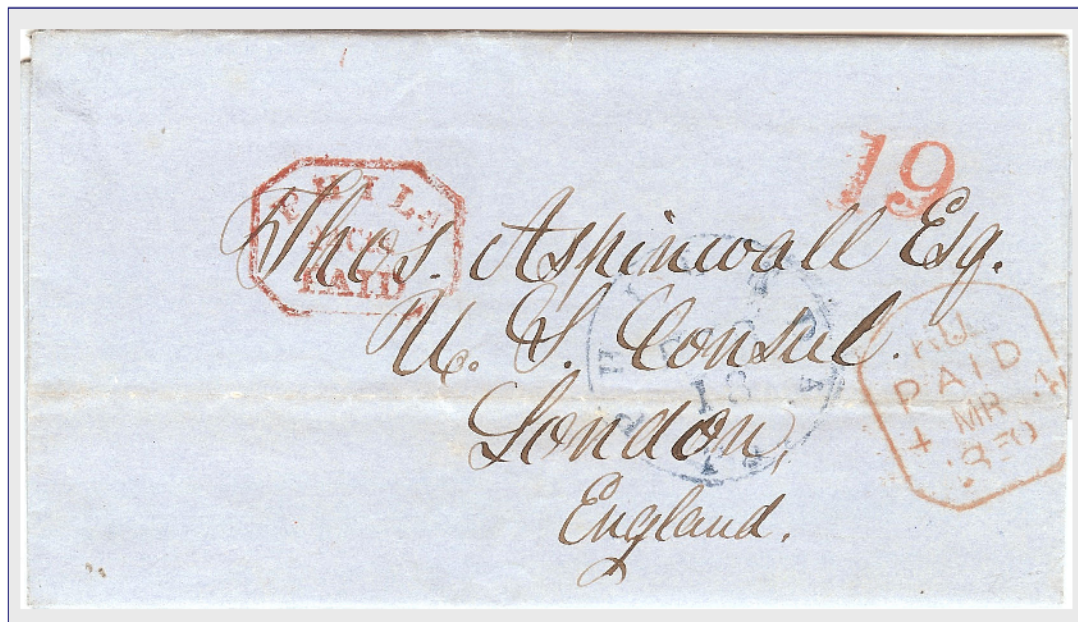 PHILA
PAID
19
Thos. Aspinwall Esq.
U. S. Consul.
London,
England.
18
PAID
MR